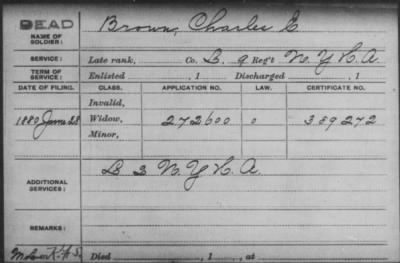 DEAD
NAME OF SOLDIER: Brown, Charles E
SERVICE: Late rank, Co. L. 9 Reg't N. Y. H. A.
TERM OF SERVICE: Enlisted , 1 Discharged , 1
DATE OF FILING. CLASS. APPLICATION NO. LAW. CERTIFICATE NO.
Invalid,
1880 June 28 Widow, 272600 0 389272
Minor,
ADDITIONAL SERVICES: L 2 N. Y. H. A.
REMARKS:
Died , 1 , at